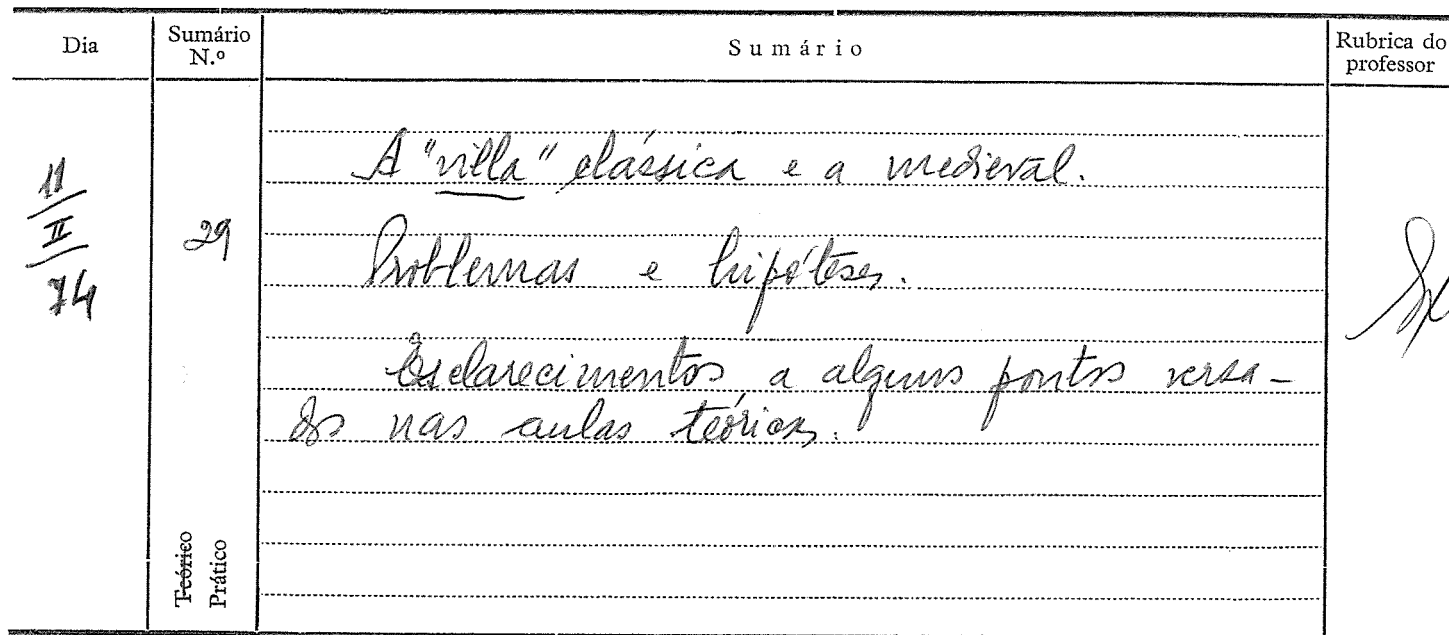 Dia
Sumário N.º
Sumário
Rubrica do professor
11
II
74
29
A "villa" clássica e a medieval.
Problemas e hipóteses.
Esclarecimentos a alguns pontos versa-
dos nas aulas teóricas.
Teórico
Prático